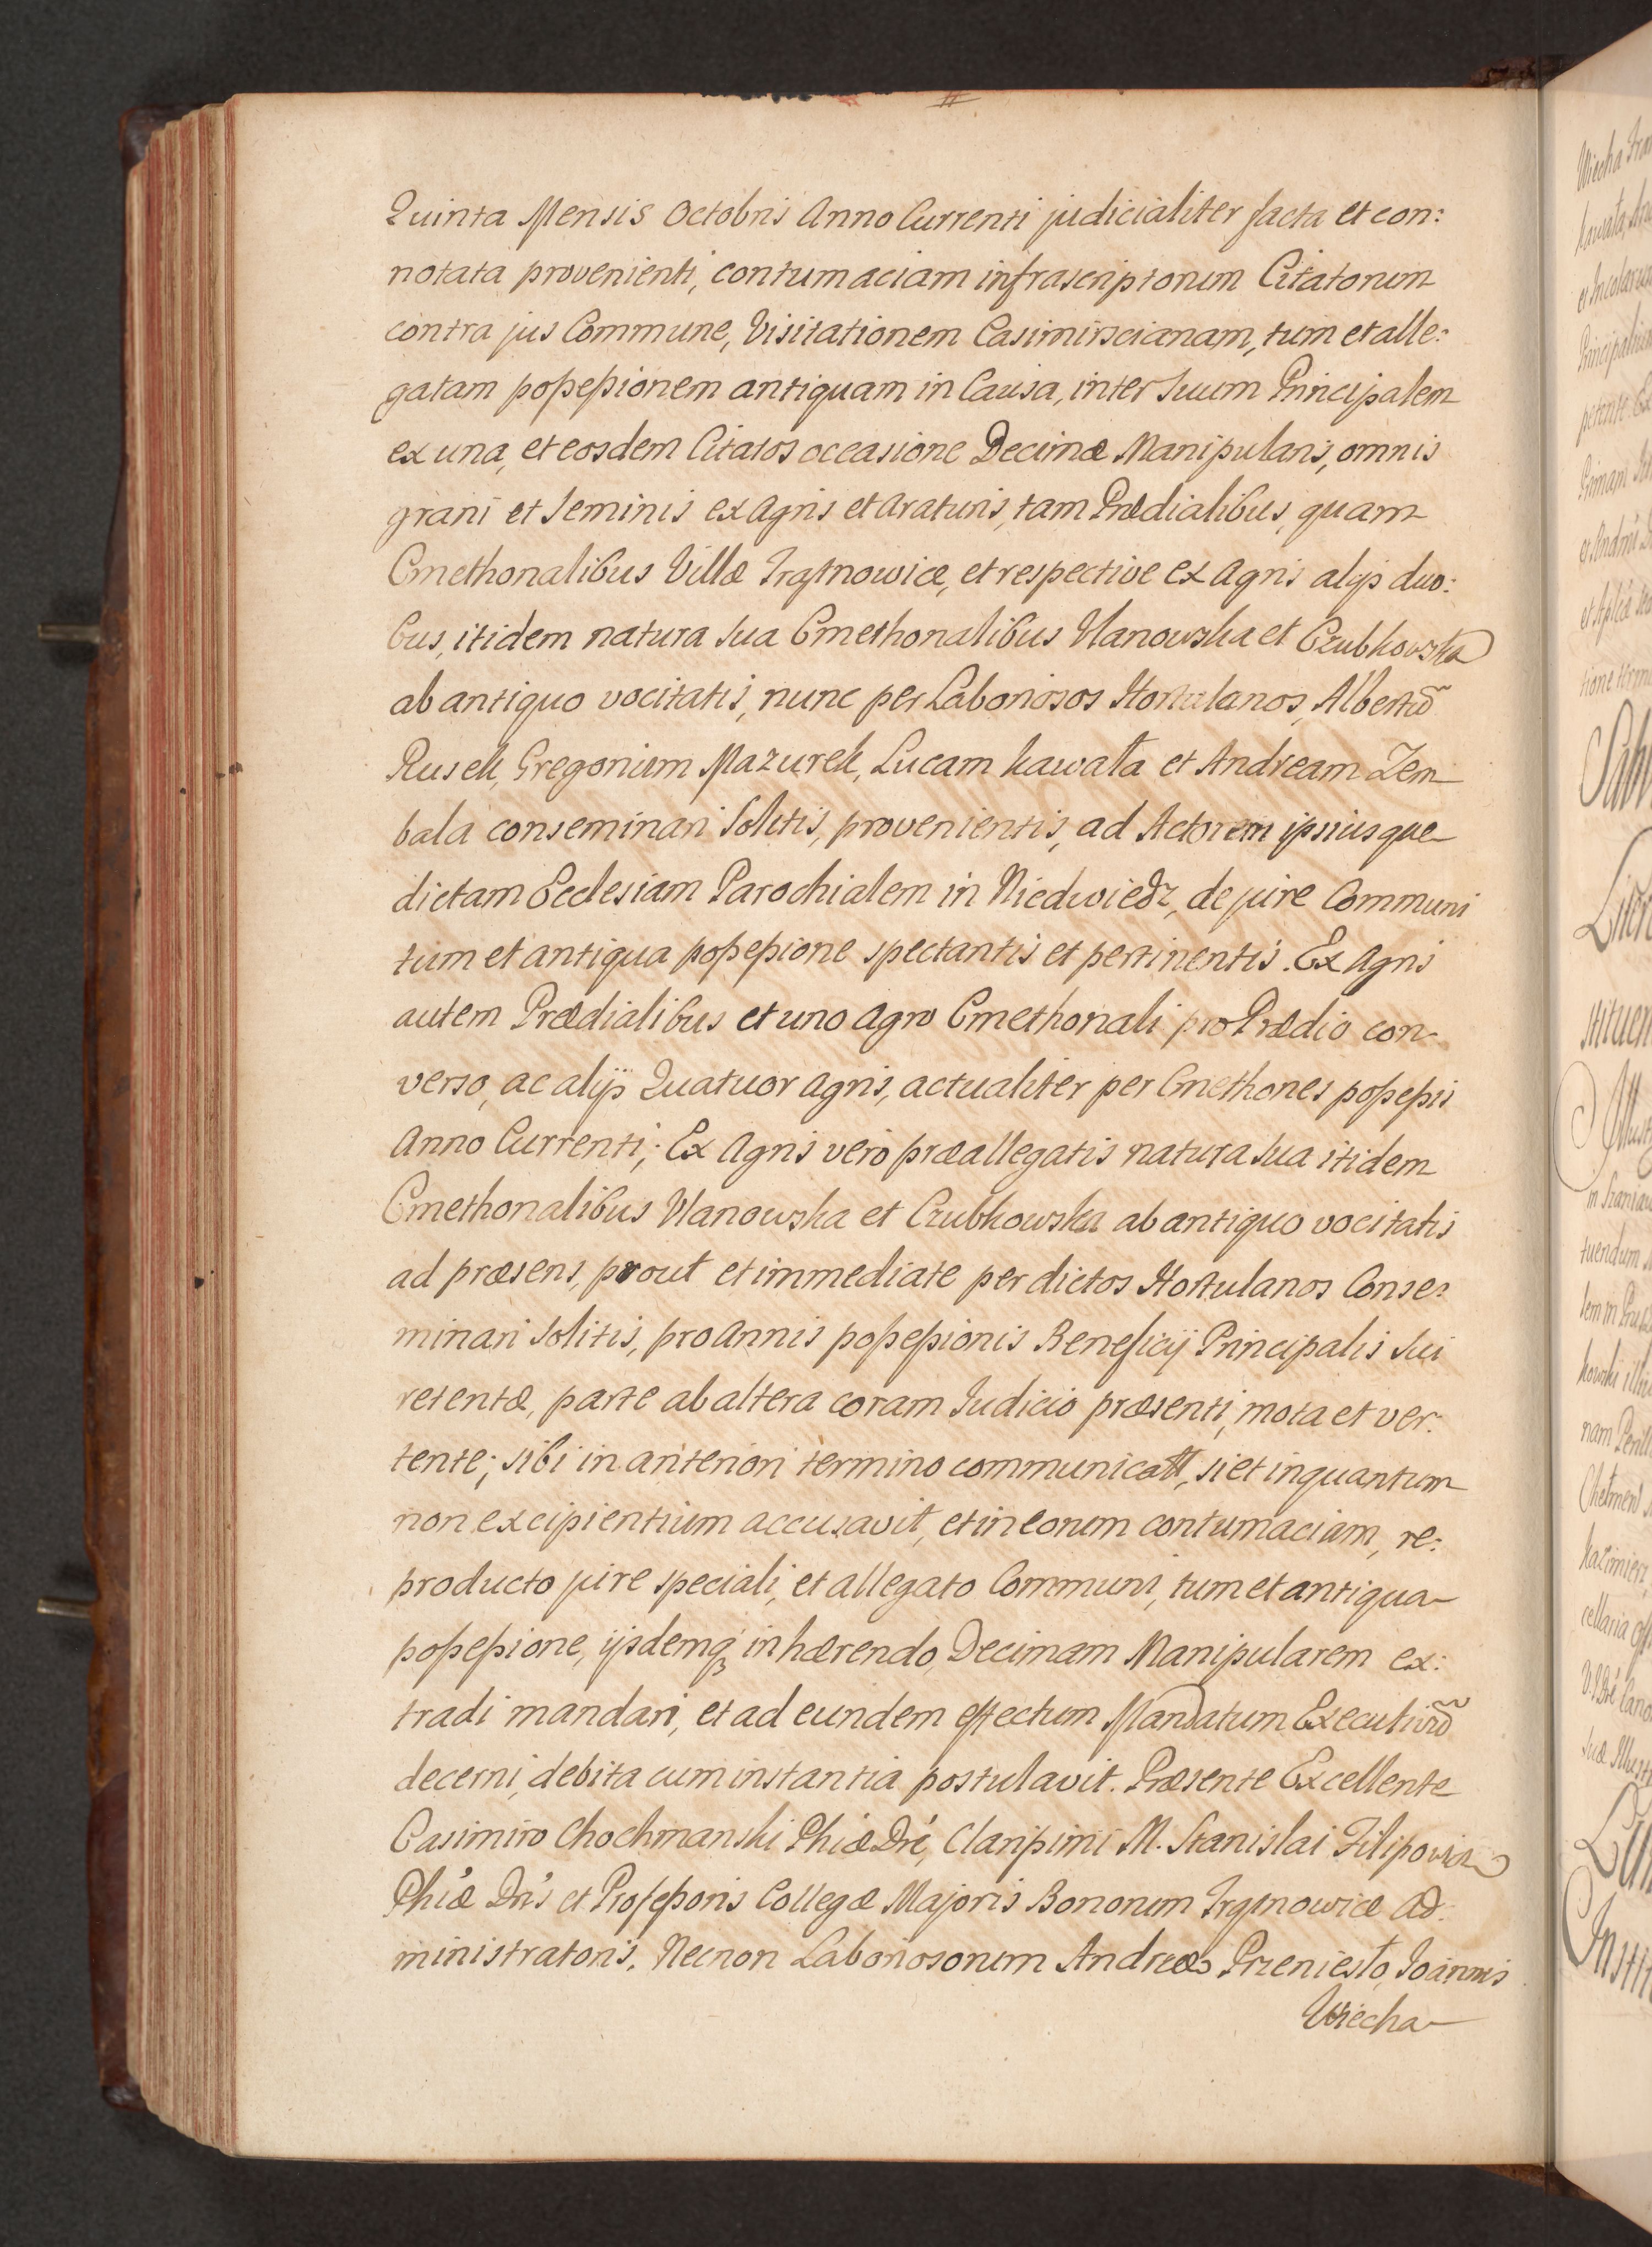 Quinta Mensis Octobris Anno Currenti judicialiter facta et con:
notata provenienti, contumaciam infrascriptorum Citatorum
contra jus Commune, Visitationem Casimirscianam, tum et alle:
gatam possessionem antiquam in Causa, inter Suum Principalem
ex una, et eosdem Citatos occasione Decimæ Manipularis, omnis
grani et Seminis ex Agris et Araturis, tam Prædialibus, quam
Cmethonalibus Villæ Trątnowice, et respective ex Agris alijs duo:
bus, itidem natura Sua Cmethonalibus Ulanowska et Czubkowska
ab antiquo vocitatis, nunc per Laboriosos Hortulanos, Albertũ
Rusek, Gregorium Mazurek, Lucam Kawała et Andream Zem
bala conseminari Solitis, provenientis, ad Actorem ipsiusque
dictam Ecclesiam Parochialem in Niedwiedz, de jure Communi
tum et antiqua possessione spectantis et pertinentis. Ex Agris
autem Prædialibus et uno Agro Cmethonali pro Prædio con
verso, ac alijs Quatuor Agris, actualiter per Cmethones possessis
Anno Currenti; Ex Agris vero præallegatis natura Sua itidem
Cmethonalibus Ulanowska et Czubkowska ab antiquo vocitatis
ad præsens, prout et immediate per dictos Hortulanos Conse:
minari Solitis, pro Annis possessionis Beneficij Principalis Sui
retentæ, parte ab altera coram Judicio præsenti, mota et ver:
tente; sibi in anteriori termino communicatã, si et inquantum
non excipientium accusavit, et in eorum contumaciam, re:
producto jure speciali, et allegato Communi, tum et antiqua
possessione, ijsdemq₃ inhærendo, Decimam Manipularem ex:
tradi mandari, et ad eundem effectum Mandatum Executivũ
decerni, debita cum instantia postulavit. Præsente Excellente
Casimiro Chochmanski Phiæ Dre, Clarissimi M. Stanislai Filipowicz
Phiæ Dris et Professoris Collegæ Majoris Bonorum Trątnowice Ad:
ministratoris. Necnon Laboriosorum Andreæ Przeniesło, Joannis
Wiecha